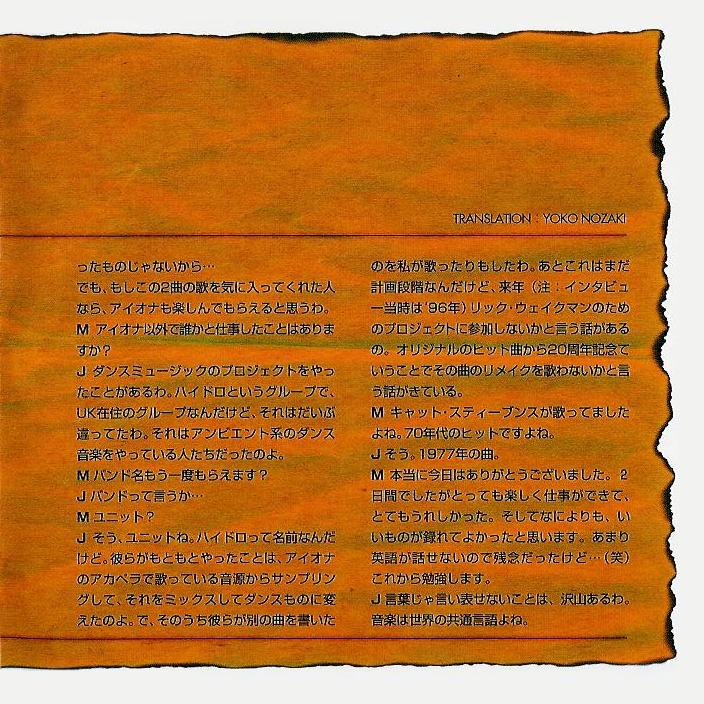 TRANSLATION : YOKO NOZAKI
ったものじゃないから…
でも、もしこの2曲の歌を気に入ってくれた人
なら、アイオナも楽しんでもらえると思うわ。
M アイオナ以外で誰かと仕事したことはありま
すか?
J ダンスミュージックのプロジェクトをやっ
たことがあるわ。ハイドロというグループで、
UK在住のグループなんだけど、それはだいぶ
違ってたわ。それはアンビエント系のダンス
音楽をやっている人たちだったのよ。
M バンド名もう一度もらえます?
J バンドって言うか…
M ユニット?
J そう、ユニットね。ハイドロって名前なんだ
けど。彼らがもともとやったことは、アイオナ
のアカペラで歌っている音源からサンプリン
グして、それをミックスしてダンスものに変
えたのよ。で、そのうち彼らが別の曲を書いた
のを私が歌ったりもしたわ。あとこれはまだ
計画段階なんだけど、来年(注:インタビュ
ー当時は'96年)リック・ウェイクマンのため
のプロジェクトに参加しないかと言う話がある
の。オリジナルのヒット曲から20周年記念て
いうことでその曲のリメイクを歌わないかと言
う話がきている。
M キャット・スティーブンスが歌ってました
よね。70年代のヒットですよね。
J そう。1977年の曲。
M 本当に今日はありがとうございました。2
日間でしたがとっても楽しく仕事ができて、
とてもうれしかった。そしてなによりも、い
いものが録れてよかったと思います。あまり
英語が話せないので残念だったけど…(笑)
これから勉強します。
J 言葉じゃ言い表せないことは、沢山あるわ。
音楽は世界の共通言語よね。